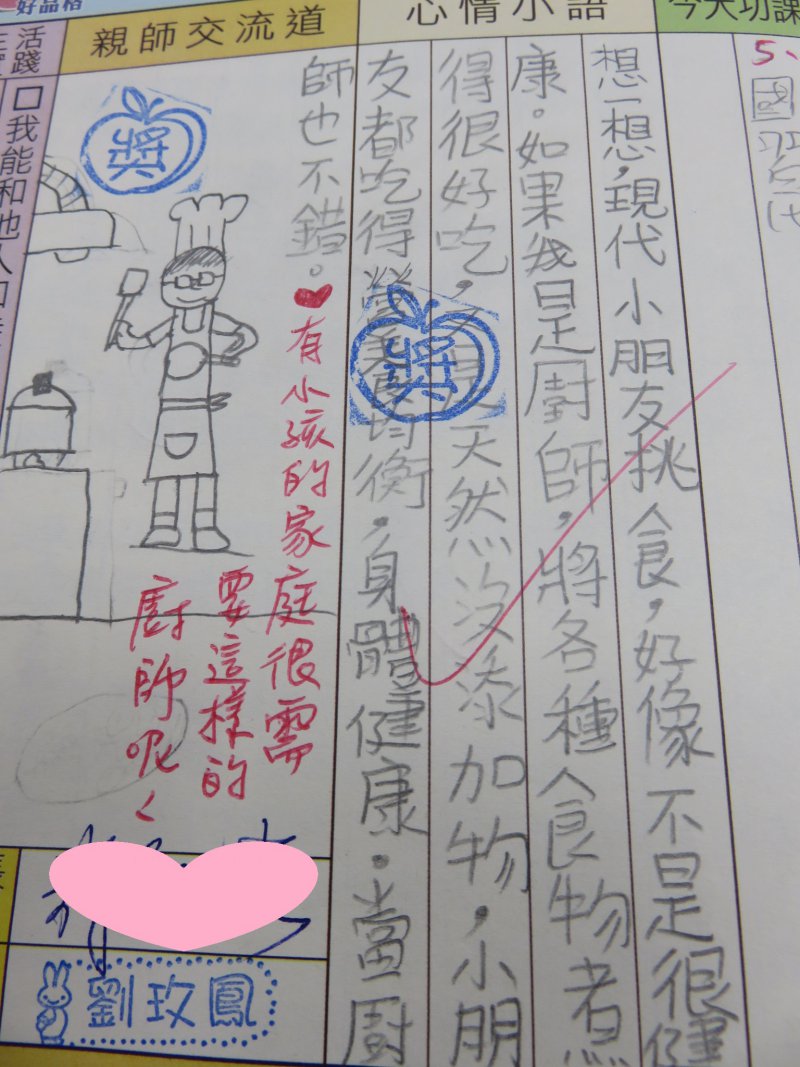 今天功課
5、
國
心情小語
想一想,現代小朋友挑食,好像不是很健
康。如果我是廚師,將各種食物煮
得很好吃,又是天然沒添加物,小朋
友都吃得營養均衡,身體健康。當廚
師也不錯。
獎
親師交流道
獎
♥有小孩的家庭很需
要這樣的
廚師呢
劉玫鳳
好品格
活踐
□我能和他人